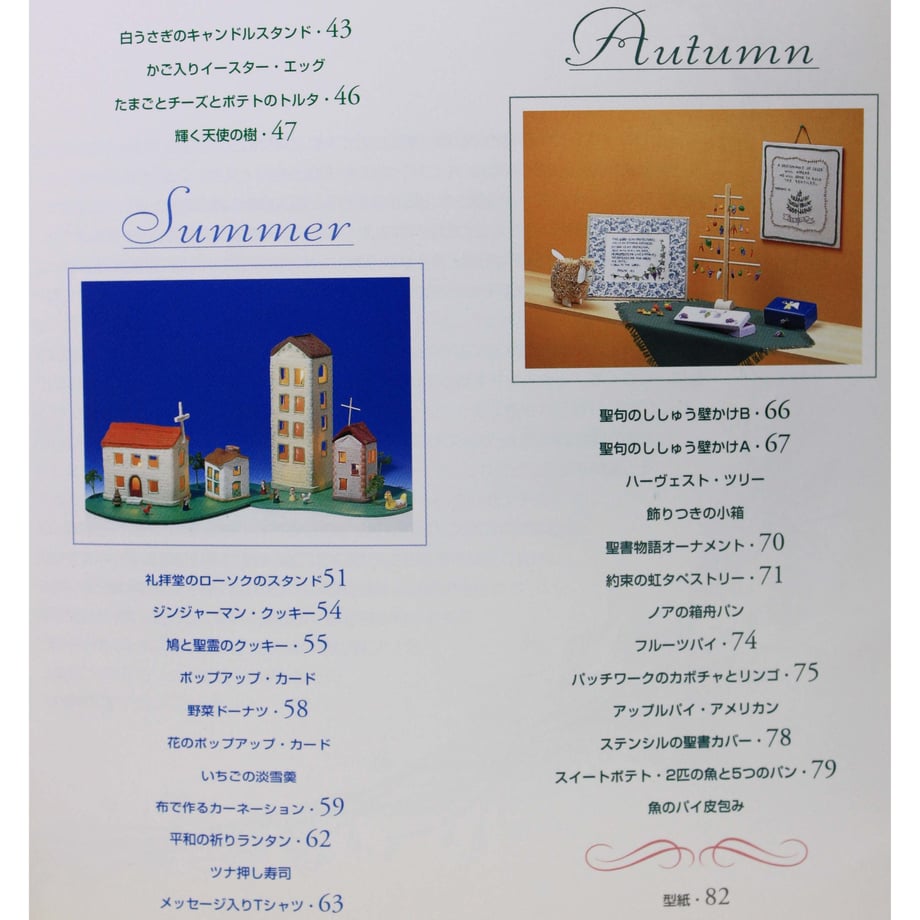 白うさぎのキャンドルスタンド・43
かご入りイースター・エッグ
たまごとチーズとポテトのトルタ・46
輝く天使の樹・47
Summer
礼拝堂のローソクのスタンド51
ジンジャーマン・クッキー54
鳩と聖霊のクッキー・55
ポップアップ・カード
野菜ドーナツ・58
花のポップアップ・カード
いちごの淡雪羹
布で作るカーネーション・59
平和の祈りランタン・62
ツナ押し寿司
メッセージ入りTシャツ・63
Autumn
聖句のししゅう壁かけB・66
聖句のししゅう壁かけA・67
ハーヴェスト・ツリー
飾りつきの小箱
聖書物語オーナメント・70
約束の虹タペストリー・71
ノアの箱舟パン
フルーツパイ・74
パッチワークのカボチャとリンゴ・75
アップルパイ・アメリカン
ステンシルの聖書カバー・78
スイートポテト・2匹の魚と5つのパン・79
魚のパイ皮包み
型紙・82